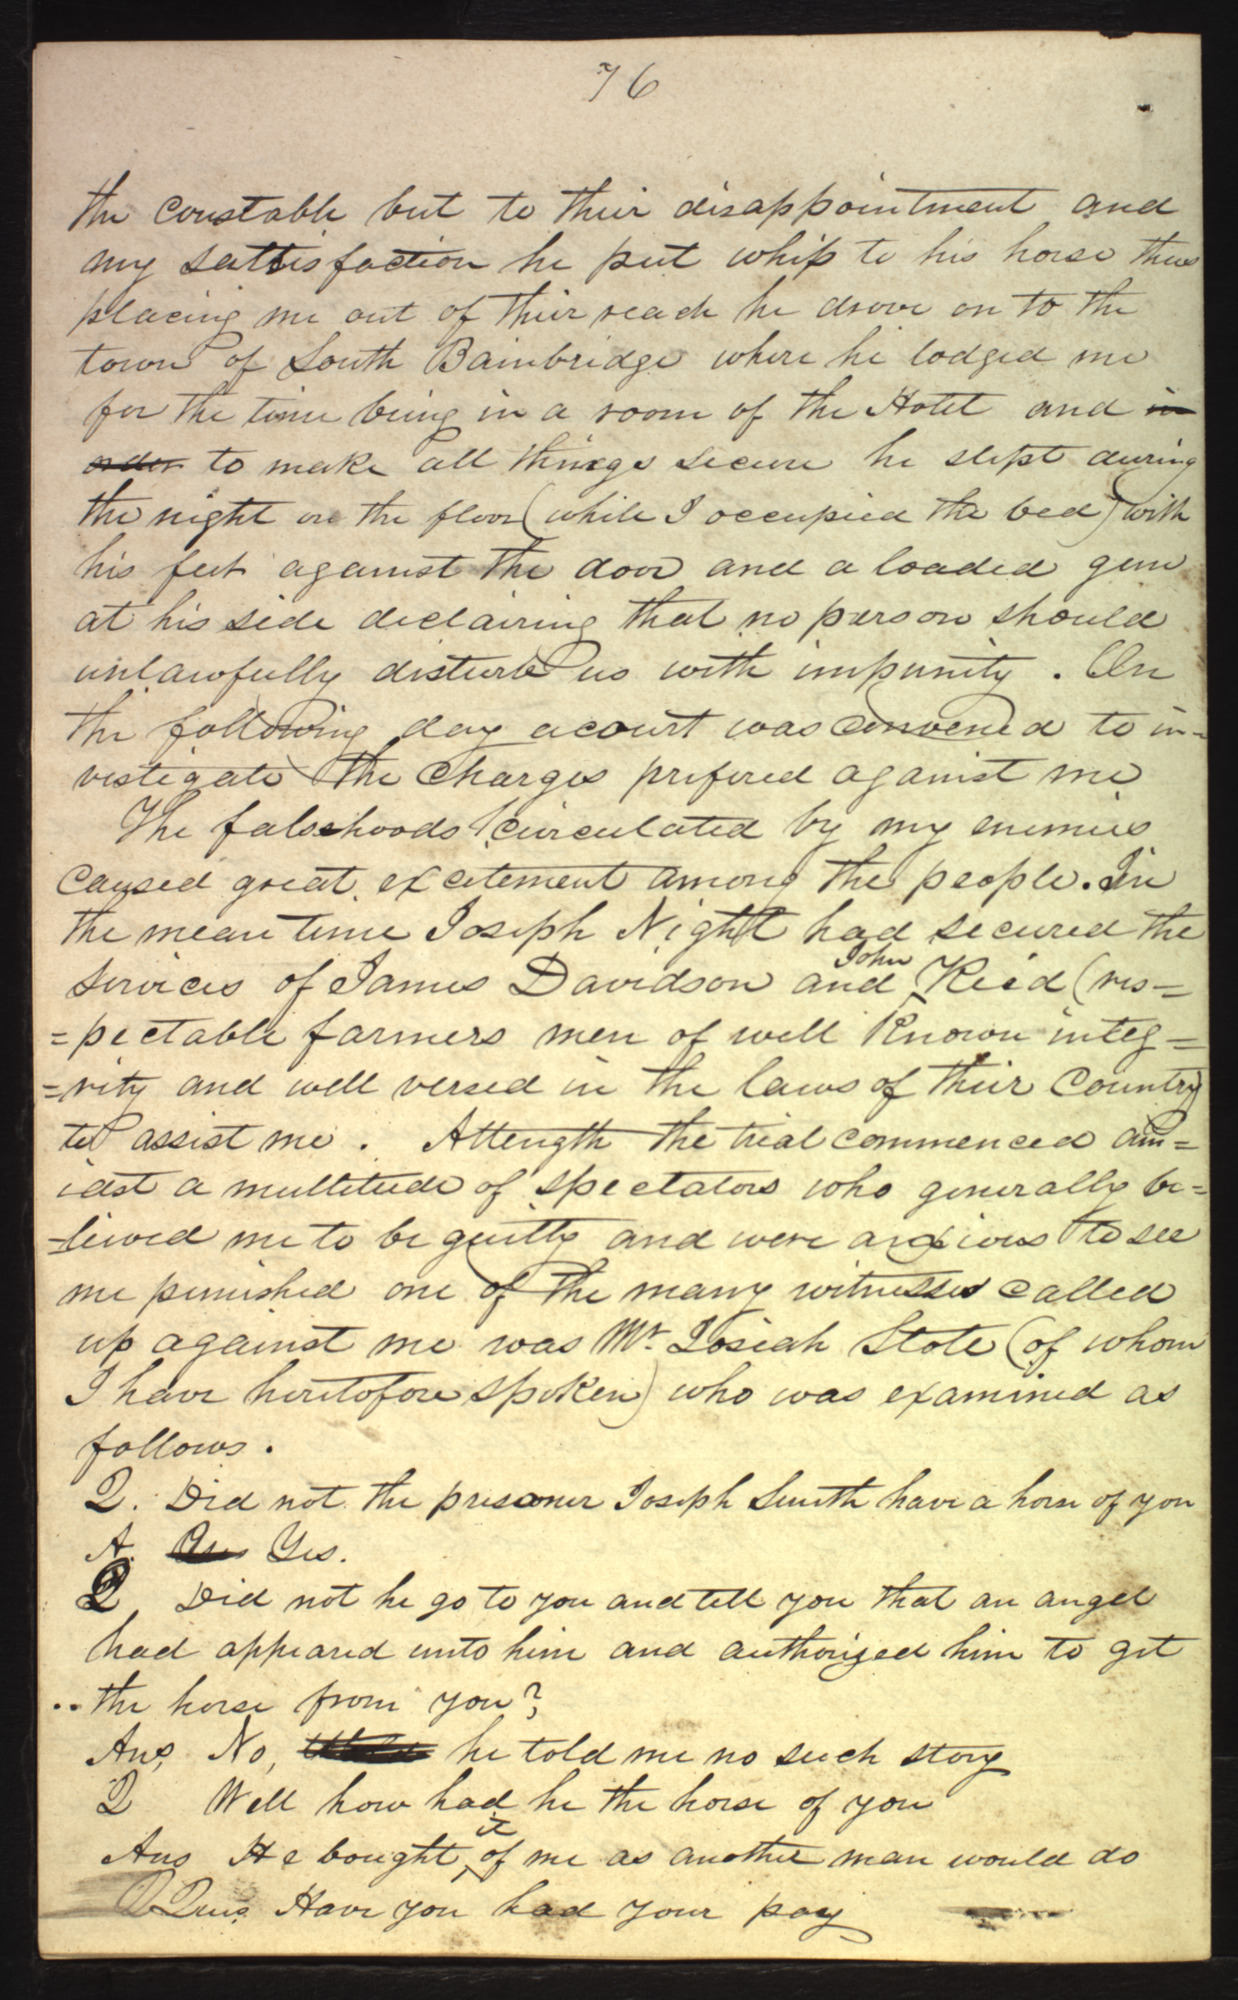 76
the constable but to their disappointment and
my sattisfaction he put whip to his horse thus
placing me out of their reach he drove on to the
town of South Bainbridge where he lodged me
for the time being in a room of the Hotel and in
order to make all things secure he slept during
the night on the floor (while I occupied the bed) with
his feet against the door and a loaded gun
at his side declairing that no person should
unlawfully disturb us with impunity. On
the following day a court was convened to in-
vestigate the charges prefered against me
The falsehoods circulated by my enemies
caused great excitement among the people. In
the mean time Joseph Night had secured the
services of James Davidson and John Reid (res=
=pectable farmers men of well known integ=
=rity and well versed in the laws of their Country
to assist me. At length the trial commenced am=
idst a multitude of spectators who generally be=
=lieved me to be guilty and were anxious to see
me punished one of the many witnesses called
up against me was Mr. Josiah Stole (of whom
I have heretofore spoken) who was examined as
follows.
Q. Did not the prisoner Joseph Smith have a horse of you
A. Ans Yes.
Q Did not he go to you and tell you that an angel
had appeared unto him and authorized him to get
.. the horse from you?
Ans. No, he told me no such story
Q Well how had he the horse of you
Ans He bought it of me as another man would do
Ques. Have you had your pay